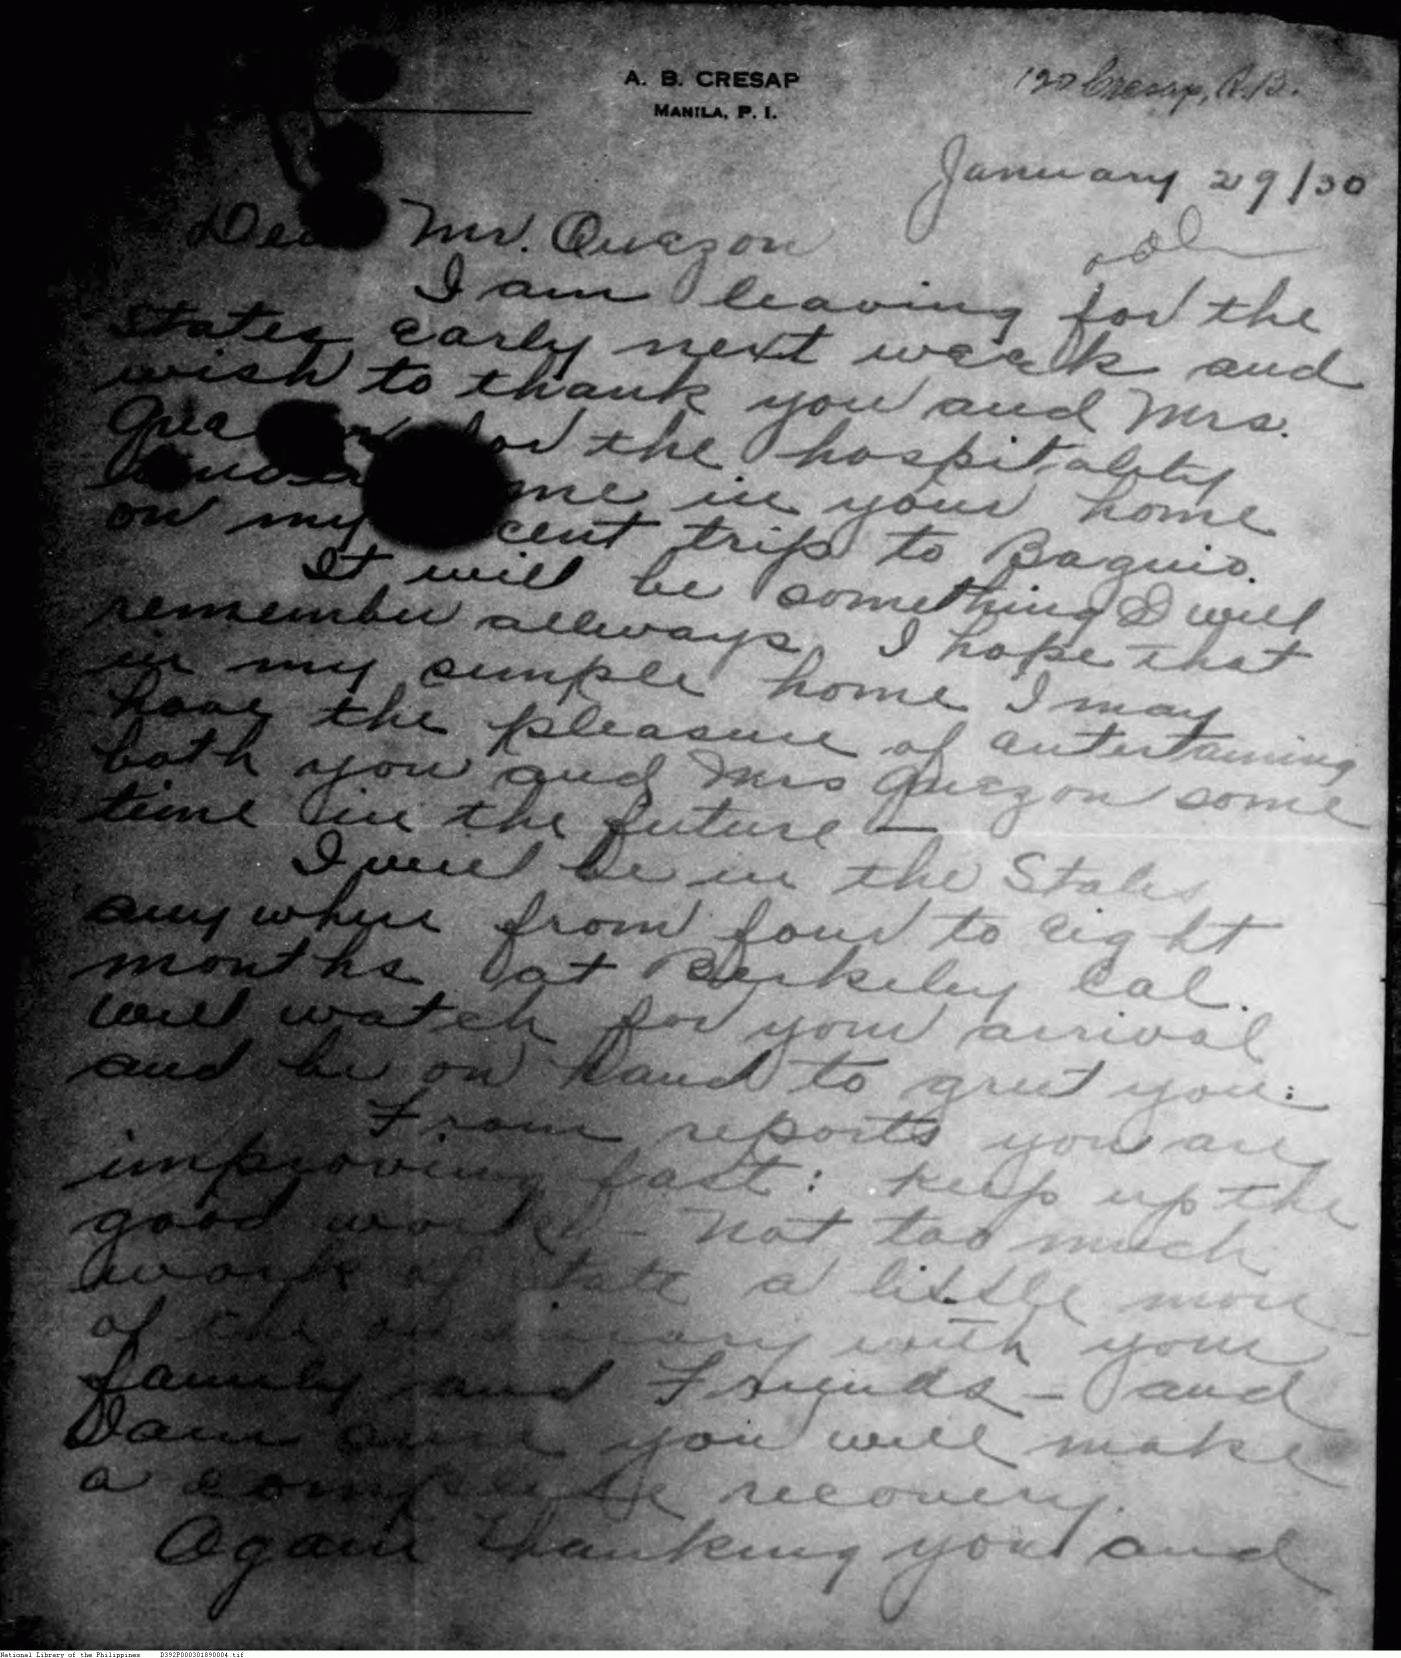 A. B. CRESAP
MANILA, P. I.
Cresap, A.B.
January 29/30
Dear Mr. Quezon
I am leaving for the
States early next week and
wish to thank you and Mrs.
for the hospitality
me in your home
on my cent trip to Baguio.
It will be something I will
remember allways. I hope that
in my simple home I may
have the pleasure of entertaining
both you and Mrs Quezon some
time in the future —
I will be in the States
any where from four to eight
months at Berkeley Cal.
will watch for your arrival
and be on hand to greet you:
From reports you are
improving fast: keep up the
good work — not too much
work of state a little more
of the ordinary with your
family and Friends — and
I am sure you will make
a complete recovery.
Again thanking you and
National Library of the Philippines D392P000301890004.tif